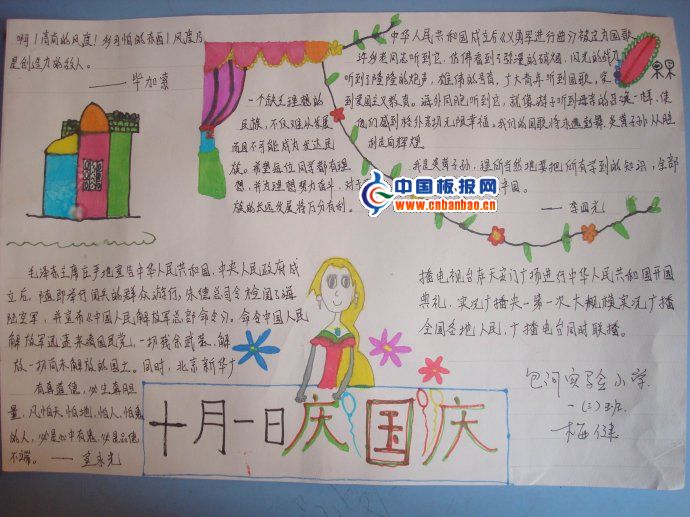 啊！高尚的风度！多可怕的东西！风度乃
是创造力的敌人。
——毕加索
一个缺乏理想的
民族，不仅难以发展
而且不可能成为发达民
族。希望每位同学都有理
想，并为理想努力奋斗，对于
族的长远发展将万分有利。
中华人民共和国成立后《义勇军进行曲》被定为国歌
许多老同志听到它，仿佛看到了弥漫的硝烟，闪光的战刀
听到了隆隆的炮声，雄伟的号音，广大青年听到国歌，受
到爱国主义教育。海外同胞听到它，就像游子听到母亲的召唤一样，使
他们感到格外亲切无限幸福。我们的国歌将永远鼓舞炎黄子孙从胜
利走向辉煌
我是炎黄子孙，理所当然地要把所学到的知识，全部
——李四光
中国板报网
www.cnbanbao.cn
毛泽东主席庄严地宣告中华人民共和国，中央人民政府成
立后，随即举行阅兵的群众游行。朱德总司令检阅了海
陆空军，并宣布《中国人民解放军总部命令》。命令中国人民
解放军迅速肃清国民党一切残余武装，解
放一切尚未解放的国土。同时，北京新华广
播电视台在天安门广场进行中华人民共和国开国
典礼，实况广播，第一次大规模实况广播
全国各地人民，广播电台同时联播。
有真道德，必生真胆
量，凡怕天，怕地，怕人，怕鬼
的人，必是心中有鬼，必是品德
不端。——宣永光
十月一日庆国庆
包河实验小学
一（三）班
梅